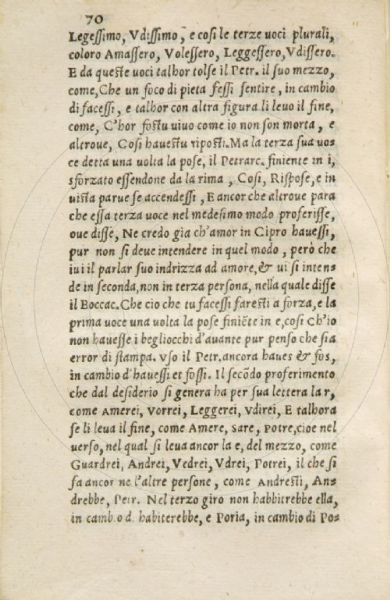 70
Legessimo, Vdissimo, e così le terze uoci plurali,
coloro Amassero, Volessero, Leggessero, Vdissero.
E da queste uoci talhor tolse il Petr. il suo mezzo,
come, Che un foco di pieta fessi sentire, in cambio
di facessi, e talhor con altra figura li leuo il fine,
come, C'hor fostu uiuo come io non son morta, e
altroue, Cosi hauestu riposti. Ma la terza sua uo=
ce detta una uolta la pose, il Petrarc. finiente in i,
sforzato essendone da la rima, Cosi, Rispose, e in
uista parue se accendessi, E ancor che altroue para
che essa terza uoce nel medesimo modo proferisse,
oue disse, Ne credo gia ch'amor in Cipro hauessi,
pur non si deue intendere in quel modo, però che
iui il parlar suo indrizza ad amore, & ui si inten=
de in seconda, non in terza persona, nella quale disse
il Boccac. Che cio che tu facessi faresti a forza, e la
prima uoce una uolta la pose finiẽte in e, cosi Ch'io
non hauesse i begliocchi d'auante pur penso che sia
error di stampa. Vso il Petr. ancora haues & fos,
in cambio d'hauessi et fossi. Il secõdo proferimento
che dal desiderio si genera ha per sua lettera la r,
come Amerei, Vorrei, Leggerei, Vdirei, E talhora
se li leua il fine, come Amere, Sare, Potre, cioe nel
uerso, nel qual si leua ancor la e, del mezzo, come
Guardrei, Andrei, Vedrei, Vdrei, Potrei, il che si
fa ancor ne l'altre persone, come Andresti, An=
drebbe, Petr. Nel terzo giro non habbitrebbe ella,
in cambio d. habiterebbe, e Poria, in cambio di Po=